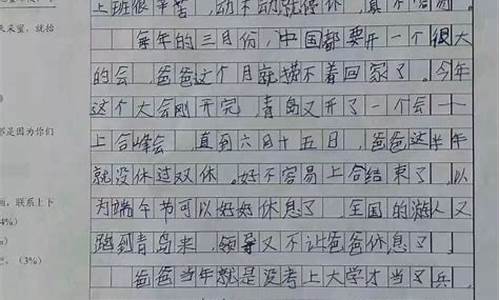 上班很辛苦，动不动就停休，真不容易。
每年的三月份，中国都要开一个很大
的会，爸爸这个月就捞不着回家了。今年
这个大会刚开完，青岛又开了一个会——
上合峰会，直到六月十五日，爸爸这半年
就没休过双休。好不容易上合结束了，以
为端午节可以好好休息了，全国的游人又
跑到青岛来，领导又不让爸爸休息了。
爸爸当年就是没考上大学才当了兵，
都是因为你们
联系上下
4%)
(3%)